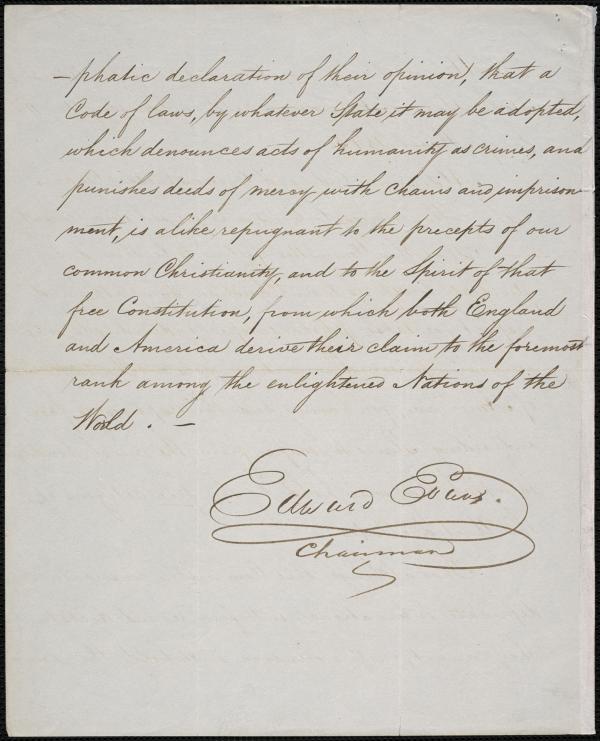 -phatic declaration of their opinion, that a
Code of laws, by whatever State it may be adopted,
which denounces acts of humanity as crimes, and
punishes deeds of mercy with chains and imprison-
ment, is alike repugnant to the precepts of our
common Christianity, and to the Spirit of that
free Constitution, from which both England
and America derive their claim to the foremost
rank among the enlightened Nations of the
World. –
Edward Evans.
Chairman